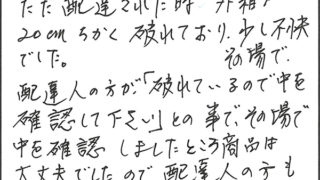 ただ 配達された時 外箱が
20cm ちかく 破れており、少し不快
でした。 その場で、
配達人の方が「破れているので中を
確認して下さい」との事で、その場で
中を確認 しましたところ商品は
大丈夫でしたので 配達人の方も